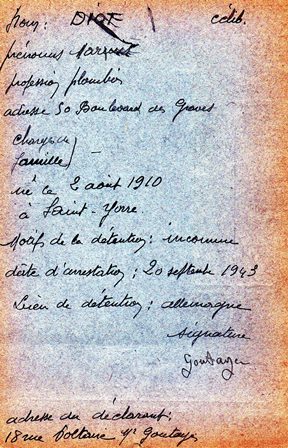 Nom: DIOT célib.
prénoms Marius
profession plombier
adresse 50 Boulevard des Graves
charges de
famille
né le 2 août 1910
à Saint-Yorre.
Motif de la détention: inconnue
date d'arrestation; 20 septembre 1943
Lieu de détention: allemagne
signature
adresse du déclarant:
18 rue Voltaire